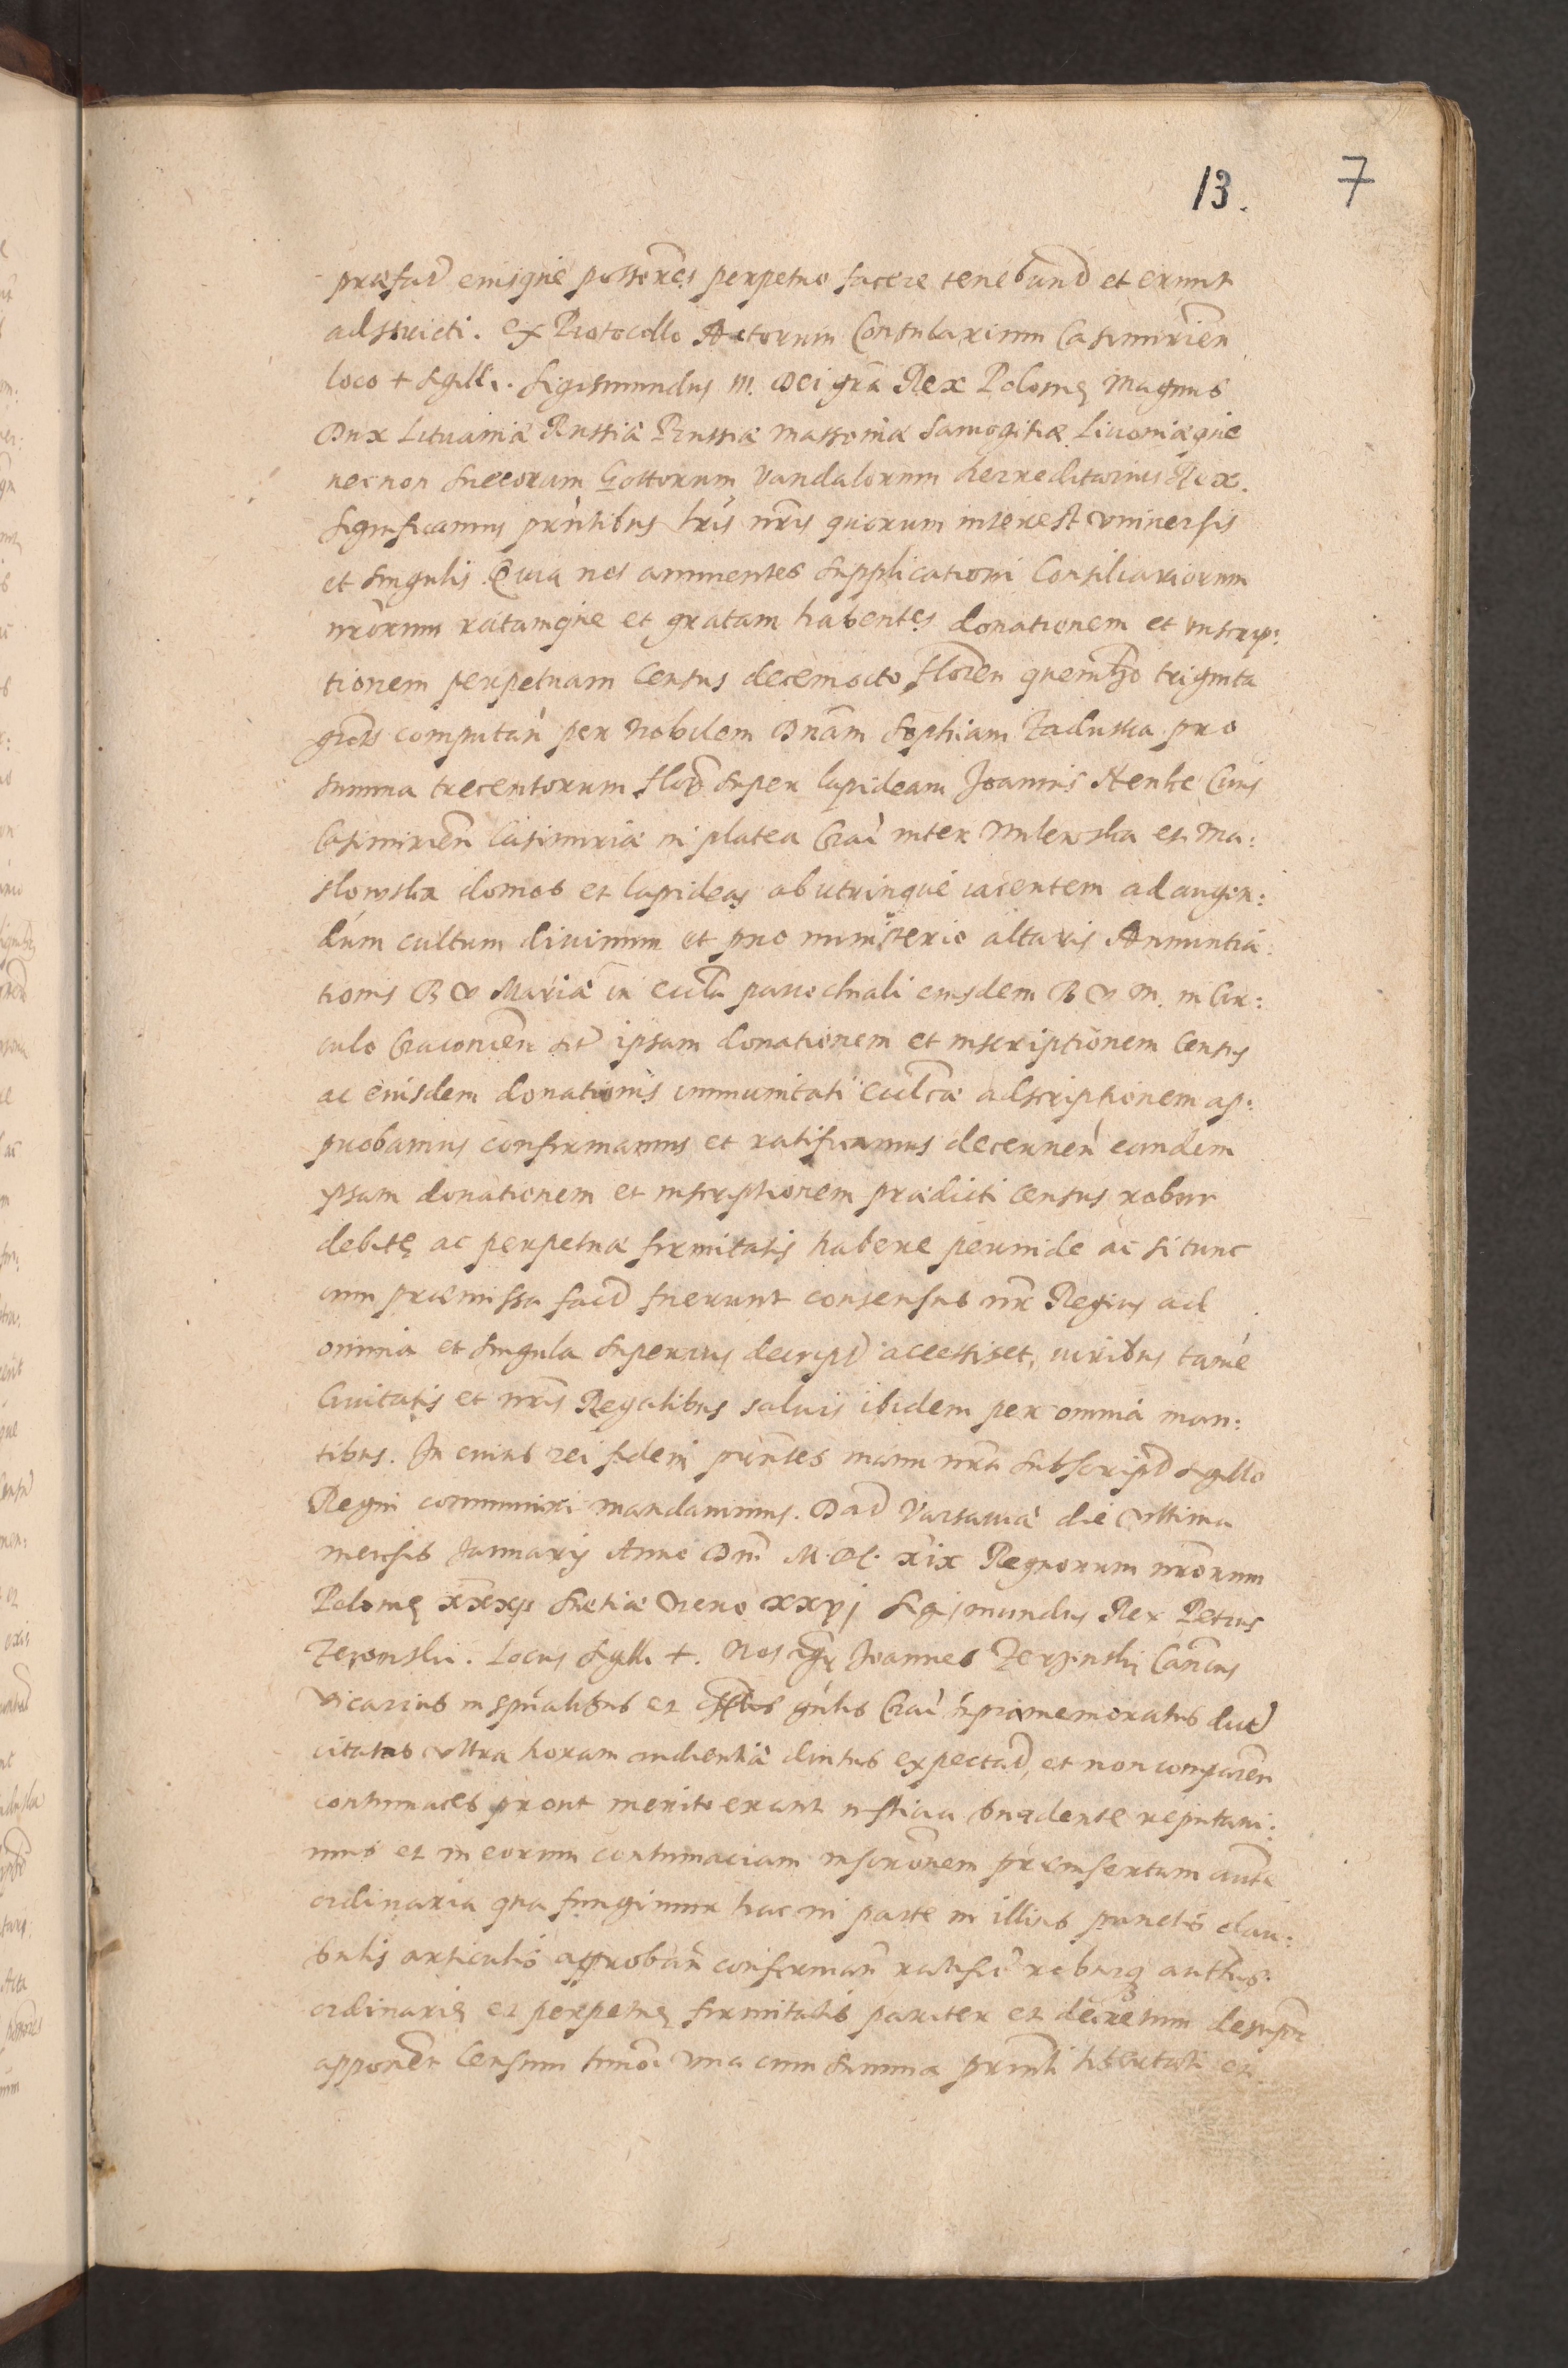 13. 7
præfať eiusque possores perpetuo facere tenebunť et erunt
adstricti. Ex Protocollo Actorum Consularium Casimirien
loco + sigilli. Sigismundus III. Dei gra Rex Polonię Magnus
Dux Lituaniæ Russiæ Prussiæ Massoviæ Samogitiæ Livoniæque
necnon Suecorum Gottorum Vandalorum herreditarius Rex.
Significamus pntibus lris nris quorum interest universis
et singulis. Quia nos annuentes supplicationi Consiliariorum
nrorum ratamque et gratam habentes donationem et inscrip:
tionem perpetuam Census decemocto floren quemlibo triginta
gross computan per Nobilem Dnam Sophiam Zaduska pro
summa trecentorum flo super lapideam Joannis Henke Civis
Casimirien Casimiriæ in platea Crac inter Milewska et Ma:
slowska domos et lapideas ab utrinque iacentem ad augen:
dum cultum divinum et pro ministerio altaris Annuntia:
tionis B V Mariæ in eccla parochiali eiusdem B V M. in Cir:
culo Cracovien sit ipsam donationem et inscriptionem Census
ac eiusdem donationis immunitati ecclcæ adscriptionem ap:
probamus confirmamus et ratificamus decernen eandem
ipsam donationem et inscriptionem prædicti census robur
debitę ac perpetuæ firmitatis habere perinde ac si tunc
cum præmissa facť fuerunt consensus nr Regius ad
omnia et singula superius descripť accessisset, iuribus tame
Civitatis et nris Regalibus salvis ibidem per omnia man:
tibus. In cuius rei fidem pntes manu nra subscripť sigillo
Regni communiri mandavimus. Dať Varsaviæ die ultima
mensis Januarij Anno Dni M.DC. xix Regnorum nrorum
Polonię xxxij Suetiæ vero xxvj Sigismundus Rex Petrus
Zeronski. Locus sigilli +. Nos igr Joannes Zerzinski Cancus
Vicarius in spiritualibus et gnlis Crac præmemoratus
citatos ultra horam audientiæ diutius expectať, et non comparen
contumaces prout merito erant iustitia suadente reputavi:
mus et in eorum contumaciam inscrionem præinsertam autte
ordinaria qua fungimur hac in parte in illius punctis clau:
sulis articulis approban confirman ratifi robur autts
ordinarię et perpetuę firmitatis pariter et decretum desuper
apponen Censum hmoi una cum summa prinli libertati et